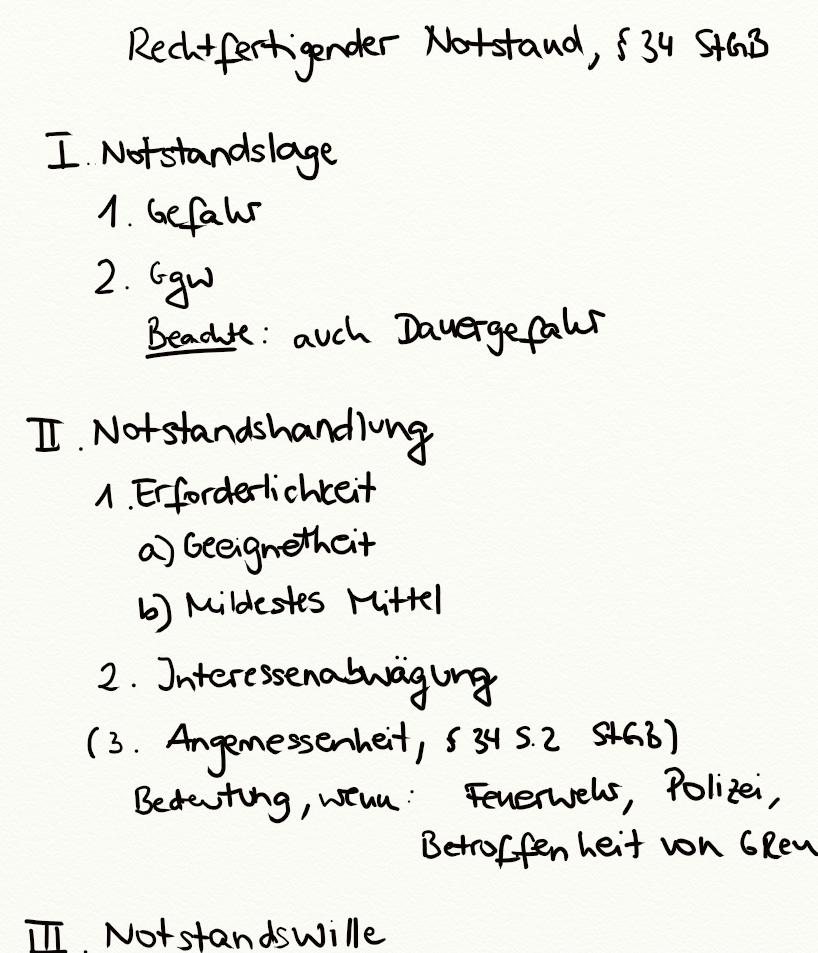 Rechtfertigender Notstand, § 34 StGB
I. Notstandslage
1. Gefahr
2. Ggw
Beachte: auch Dauergefahr
II. Notstandshandlung
1. Erforderlichkeit
a) Geeignetheit
b) Mildestes Mittel
2. Interessenabwägung
(3. Angemessenheit, § 34 S. 2 StGB)
Bedeutung, wenn: Feuerwehr, Polizei,
Betroffenheit von GRen
III. Notstandswille